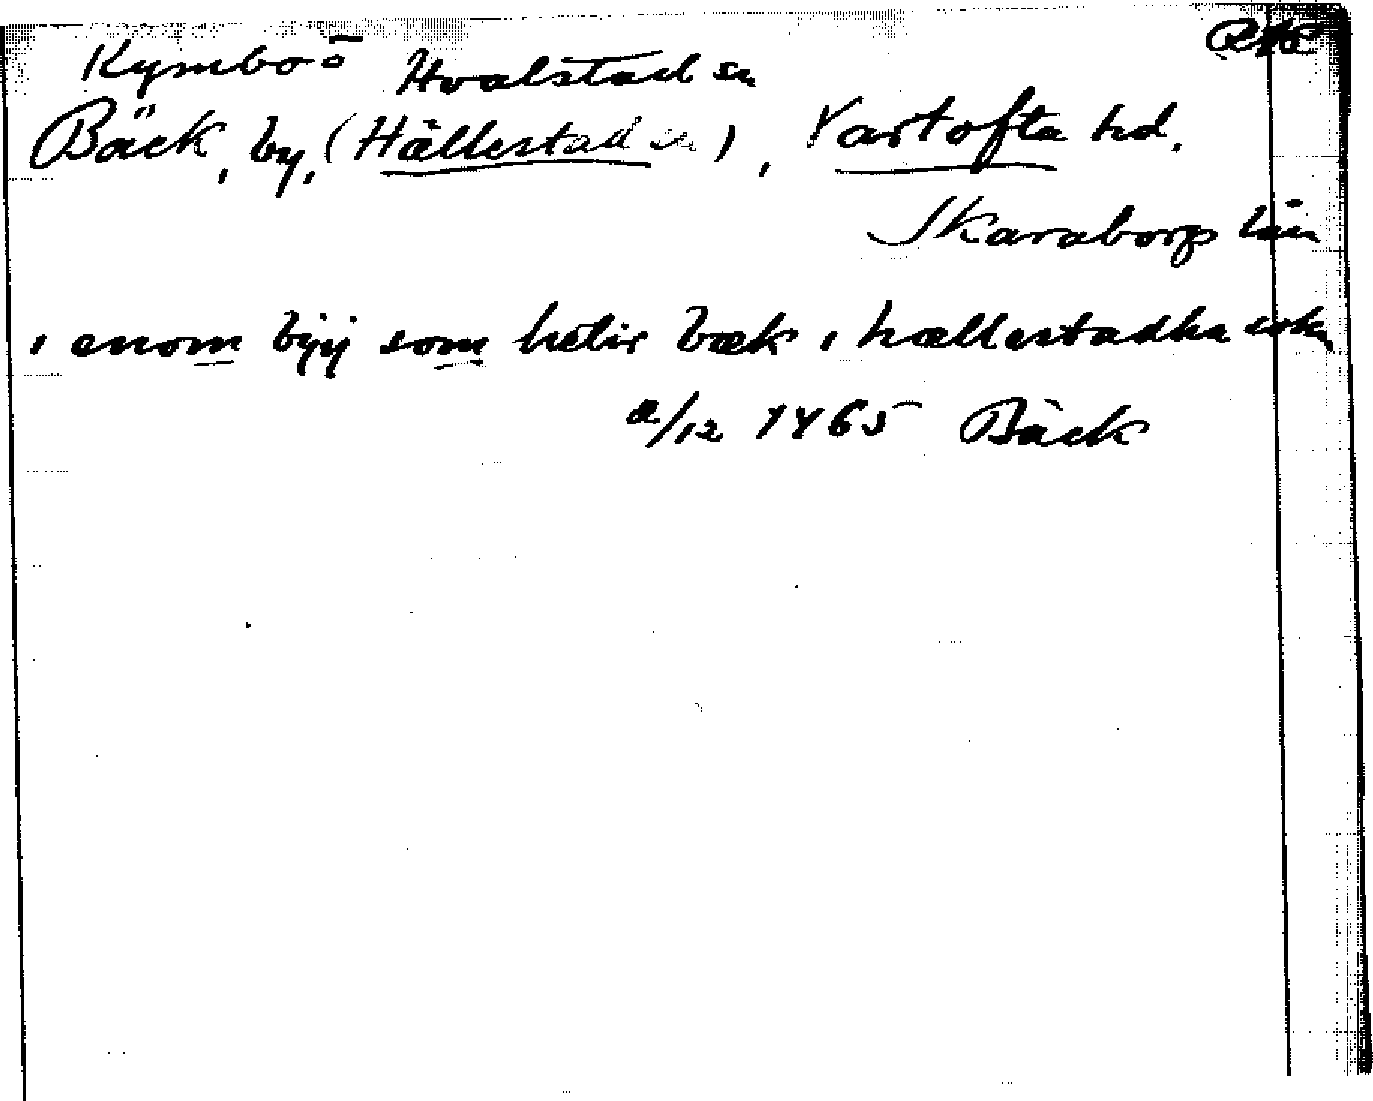 Kymbo-ö Hvalstad sn
Bäck, by, (Hällestad sn), Vartofta hd.
Skaraborgs län
i enom byij som hetir bæk i hællestadha sokn
a/12 1465 Bäck